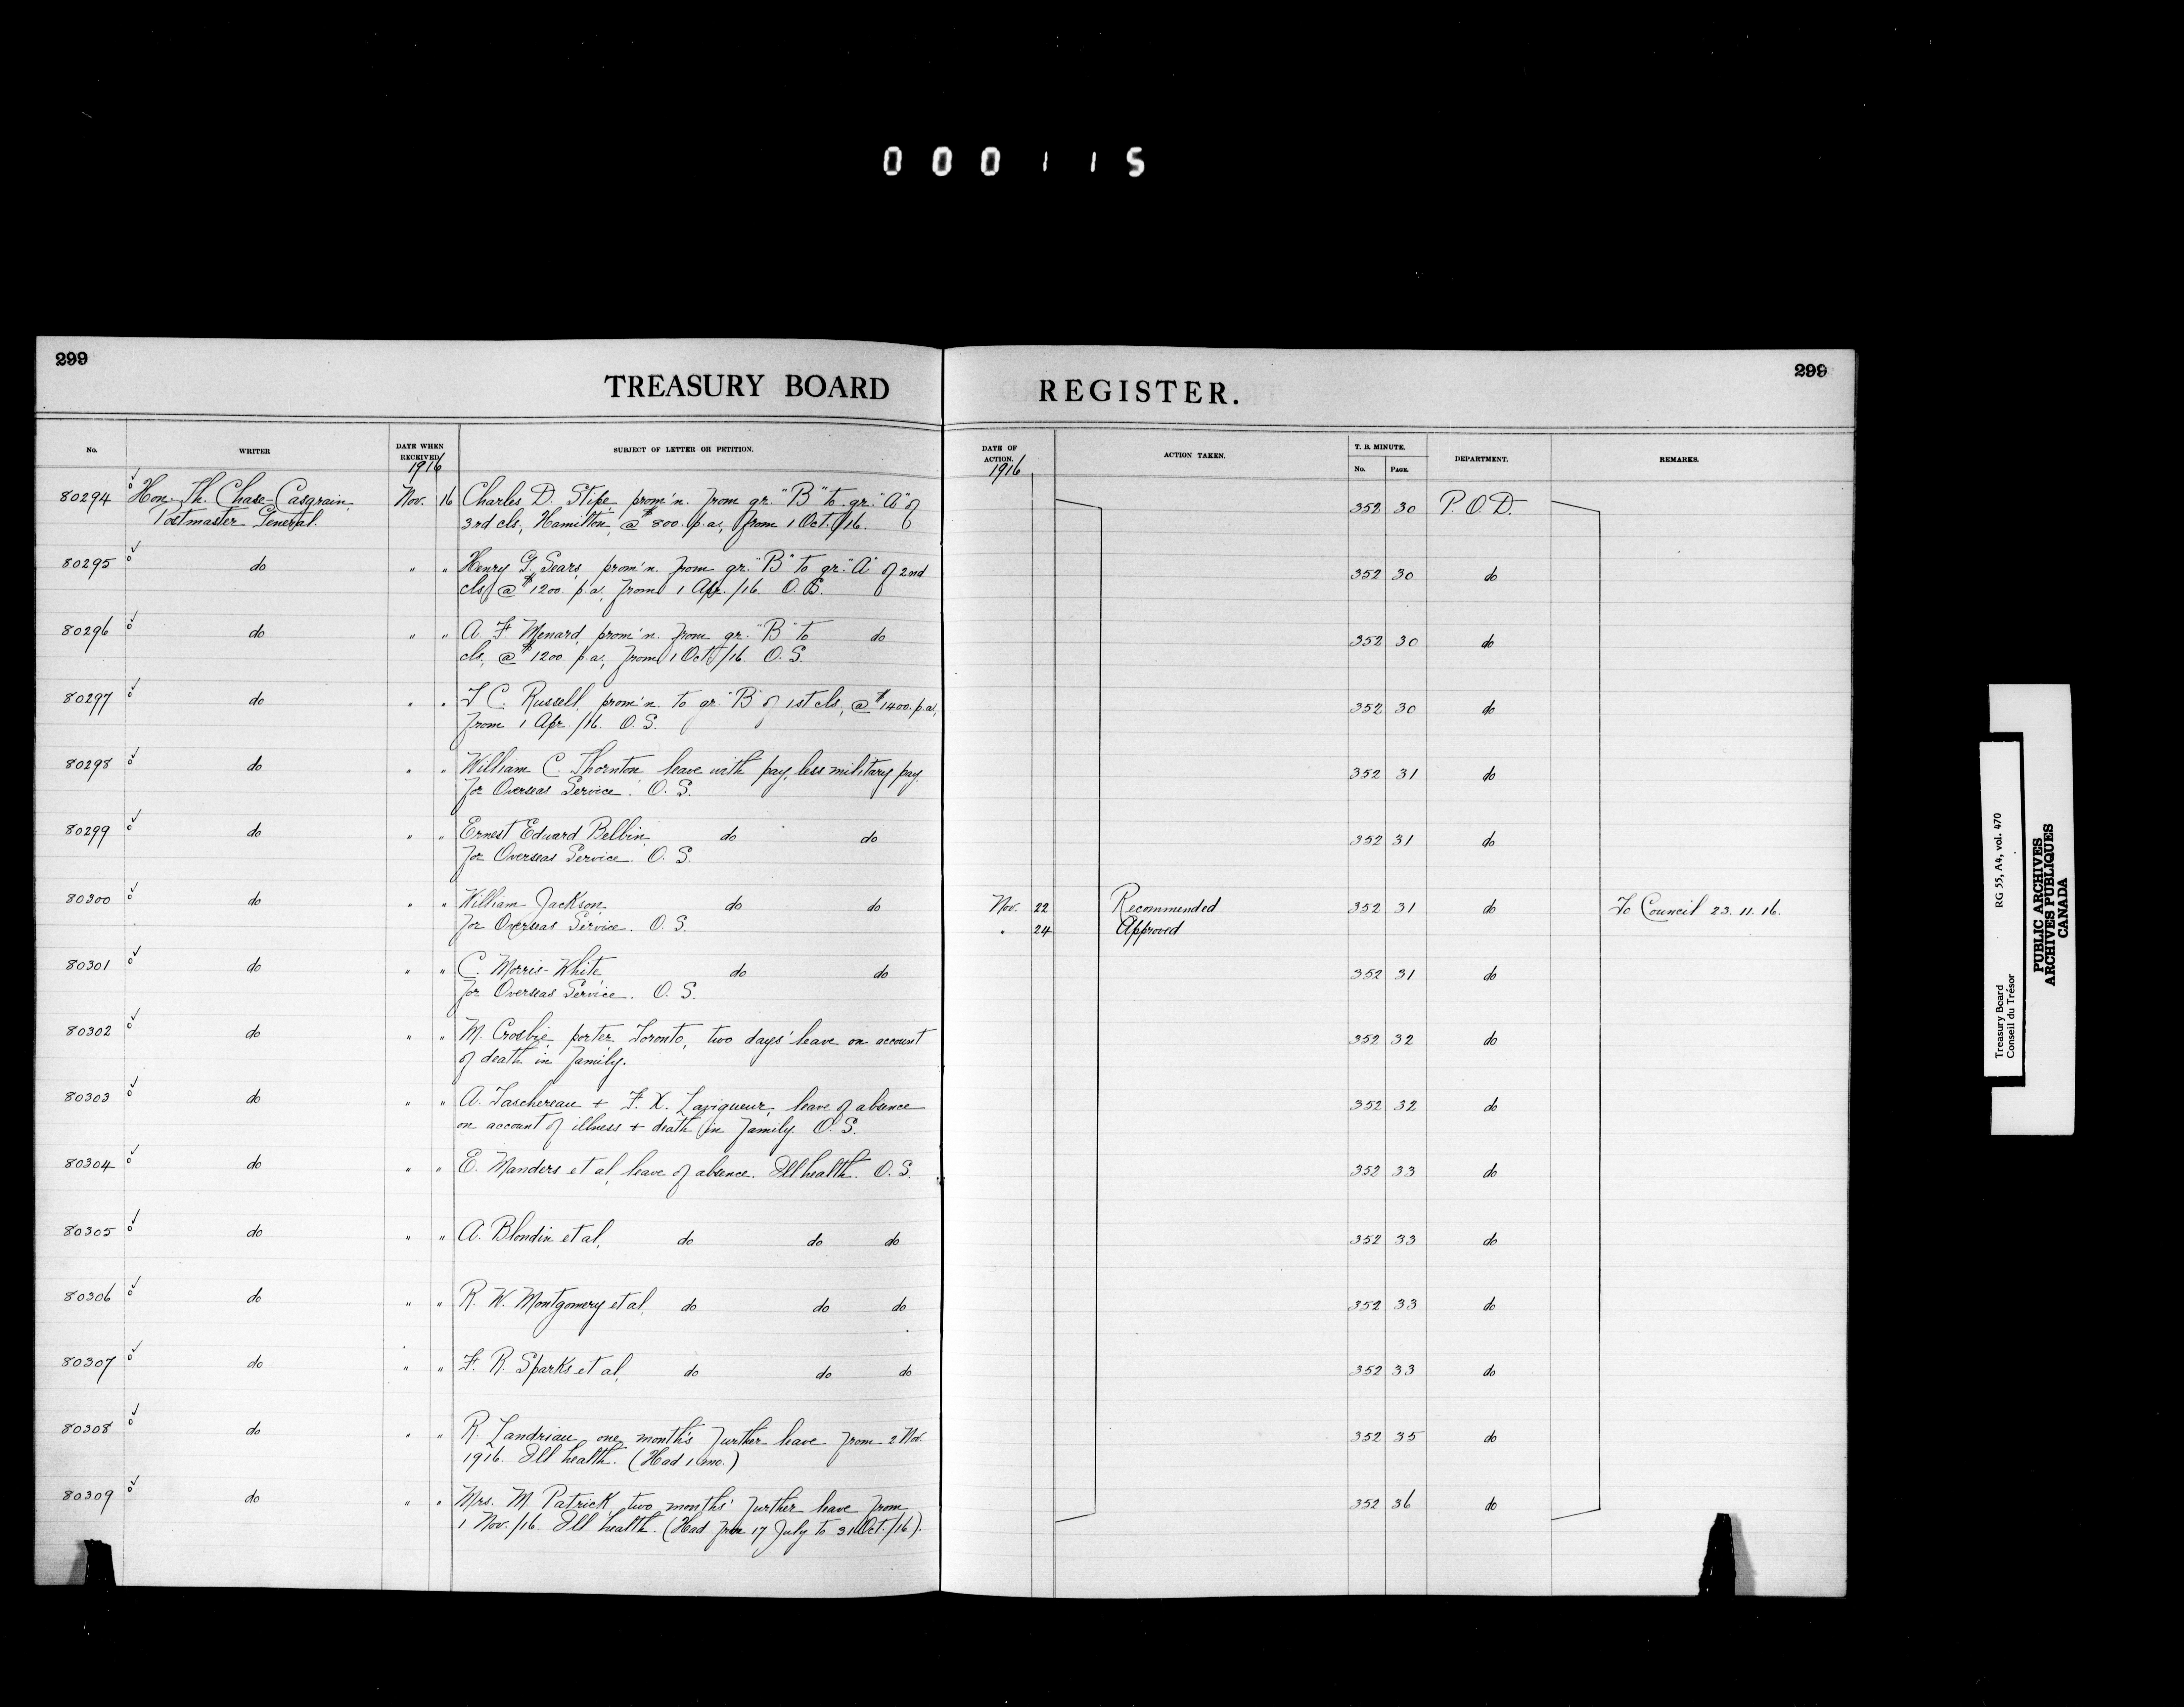 000115
299
299
TREASURY BOARD REGISTER.
No. WRITER DATE WHEN RECEIVED SUBJECT OF LETTER OR PETITION. DATE OF ACTION. ACTION TAKEN. T. B. MINUTE. No. PAGE. DEPARTMENT. REMARKS.
1916 1916
80294 Hon. Th. Chase-Casgrain, Nov. 16 Charles D. Stipe, prom'n. from gr. "B" to gr. "A" of 352 30 P.O.D.
Postmaster General. 3rd cls, Hamilton, @ $800. p.a., from 1 Oct. /16.
80295 do " " Henry G. Sears, prom'n. from gr. "B" to gr. "A" of 2nd 352 30 do
cls, @ $1200. p.a., from 1 Apr. /16. O.S.
80296 do " " A. F. Menard, prom'n. from gr. "B" to do 352 30 do
cls, @ $1200. p.a., from 1 Oct. /16. O.S.
80297 do " " T. C. Russell, prom'n. to gr. "B" of 1st cls, @ $1400. p.a., 352 30 do
from 1 Apr. /16. O.S.
80298 do " " William C. Thornton leave with pay, less military pay, 352 31 do
for Overseas Service. O.S.
80299 do " " Ernest Edward Belbin, do do 352 31 do
for Overseas Service. O.S.
80300 do " " William Jackson, do do Nov. 22 Recommended 352 31 do To Council 23.11.16.
for Overseas Service. O.S. " 24 Approved
80301 do " " C. Morris-White, do do 352 31 do
for Overseas Service. O.S.
80302 do " " M. Crosbie, porter Toronto, two days' leave on account 352 32 do
of death in family.
80303 do " " A. Taschereau + F. X. Lavigueur, leave of absence 352 32 do
on account of illness + death in family. O.S.
80304 do " " E. Manders et al, leave of absence. Ill health. O.S. 352 33 do
80305 do " " A. Blondin et al, do do do 352 33 do
80306 do " " R. W. Montgomery et al, do do do 352 33 do
80307 do " " F. R. Sparks et al, do do do 352 33 do
80308 do " " R. Landriau one month's further leave from 2 Nov. 352 35 do
1916. Ill health. (Had 1 mo.)
80309 do " " Mrs. M. Patrick, two months' further leave from 352 36 do
1 Nov. /16. Ill health. (Had from 17 July to 31 Oct. /16).
Treasury Board RG 55, A4, vol. 470
Conseil du Trésor
PUBLIC ARCHIVES
ARCHIVES PUBLIQUES
CANADA